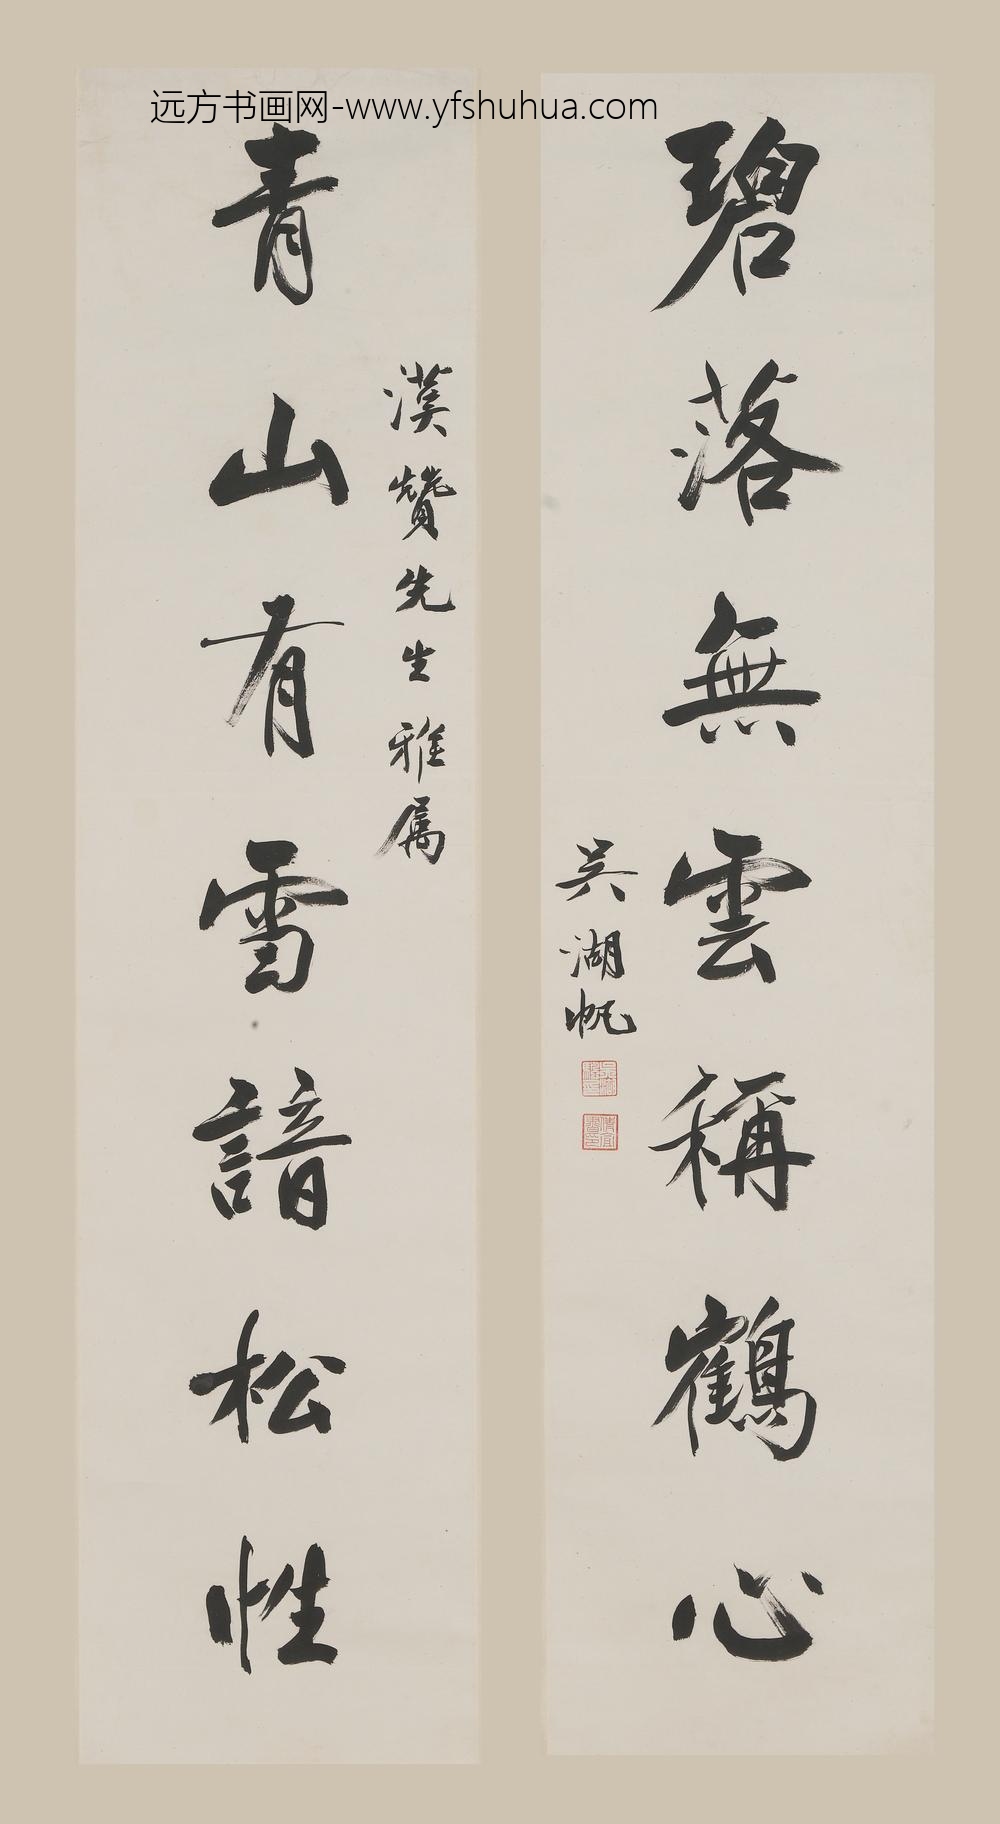 远方书画网-www.yfshuhua.com
碧落無雲稱鶴心
吴湖帆
漢贊先生雅属
青山有雪諳松性